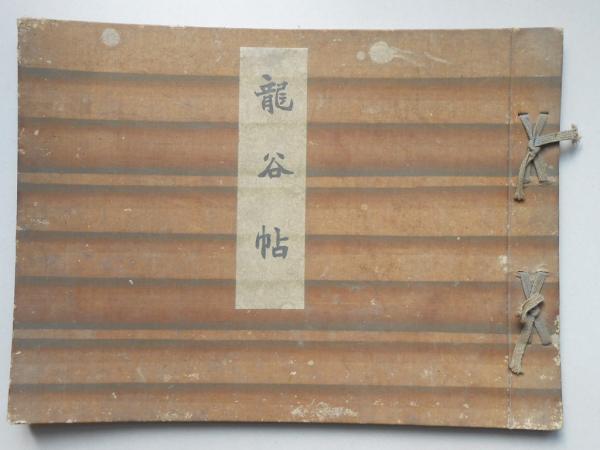 龍谷帖